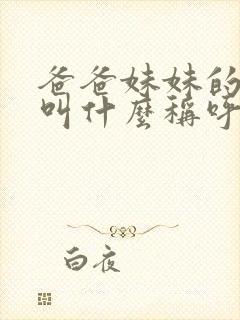 爸爸妹妹的
叫什麼稱呼
白夜